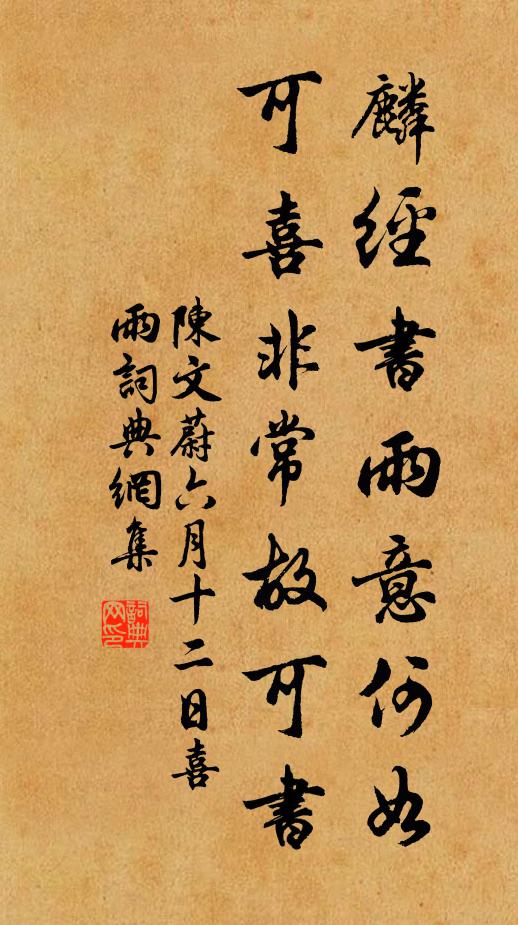 麟經書雨意何如
可喜非常故可書
陳文蔚六月十二日喜
雨詞典網集
詞典
网印